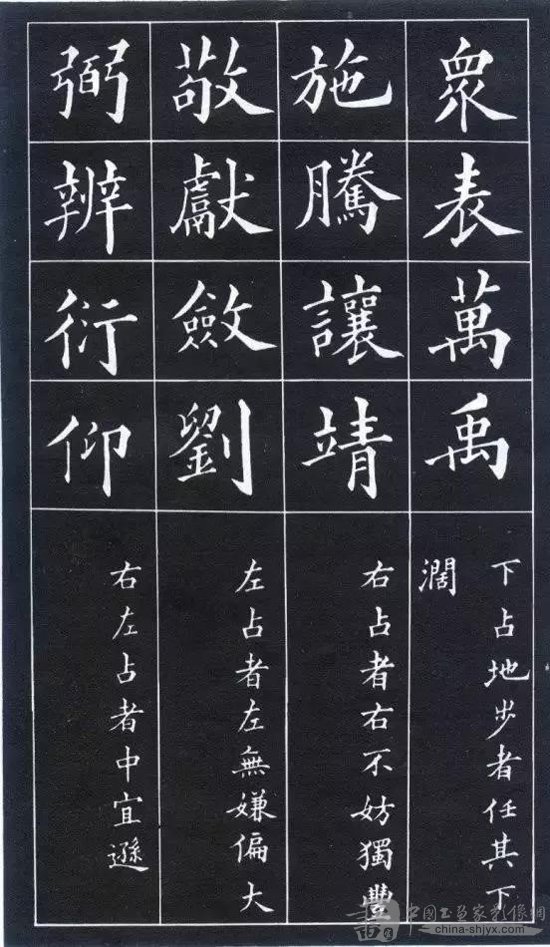 衆
表
萬
禹
下占地步者任其下
濶
施
騰
讓
靖
右占者右不妨獨豐
敬
獻
斂
劉
左占者左無嫌偏大
弼
辨
衍
仰
右左占者中宜遜
中国书画家影像網
china-shjyx.com